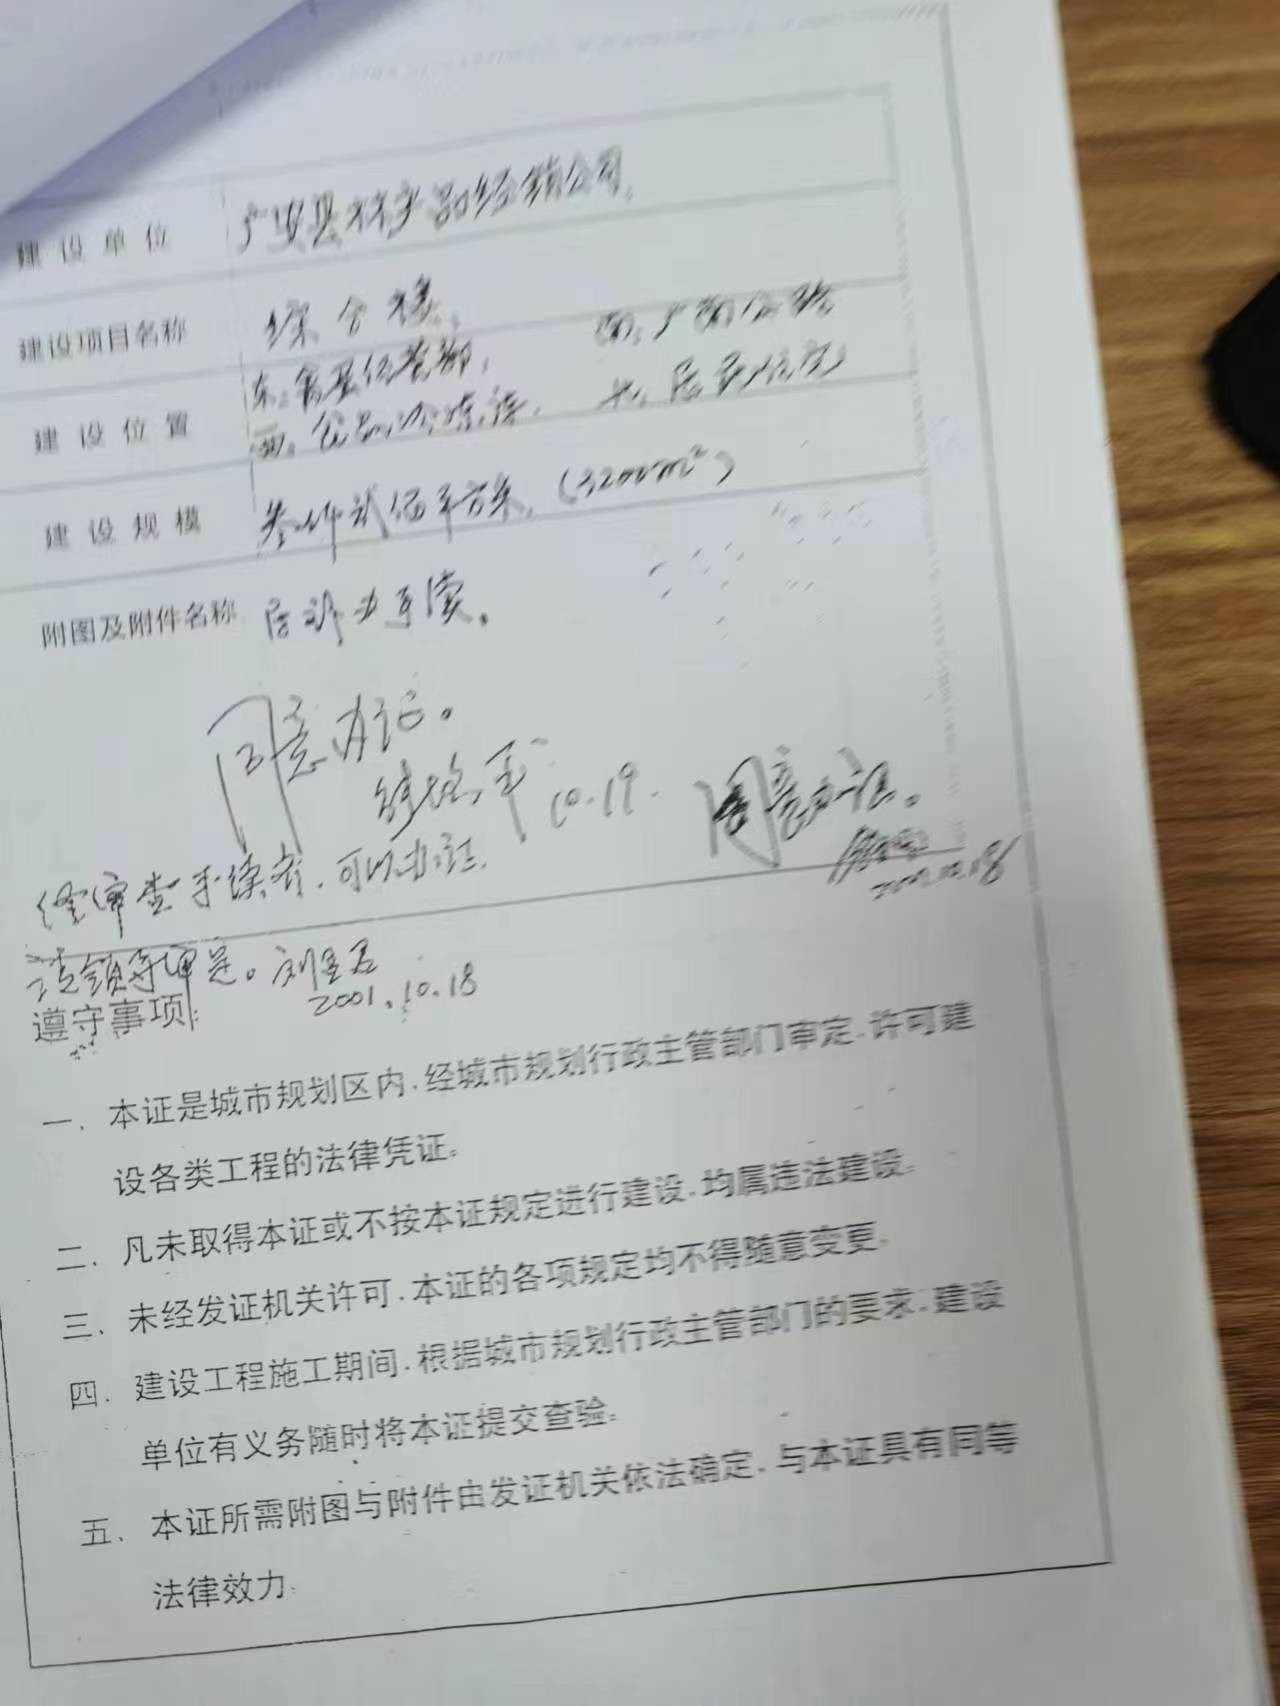 建设单位 广安县林产品经销公司
建设项目名称 综合楼
建设位置 东: 南: 广
西: 北: 居民住宅
建设规模 叁仟贰佰平方米 (3200m²)
附图及附件名称 手续。
同意办证。
10.19.
同意办证。
2001.10.18
经审查手续齐,可以办证.
请领导审定。刘
2001.10.18
遵守事项:
一. 本证是城市规划区内,经城市规划行政主管部门审定,许可建
设各类工程的法律凭证。
二. 凡未取得本证或不按本证规定进行建设,均属违法建设。
三. 未经发证机关许可,本证的各项规定均不得随意变更。
四. 建设工程施工期间,根据城市规划行政主管部门的要求,建设
单位有义务随时将本证提交查验。
五. 本证所需附图与附件由发证机关依法确定,与本证具有同等
法律效力。